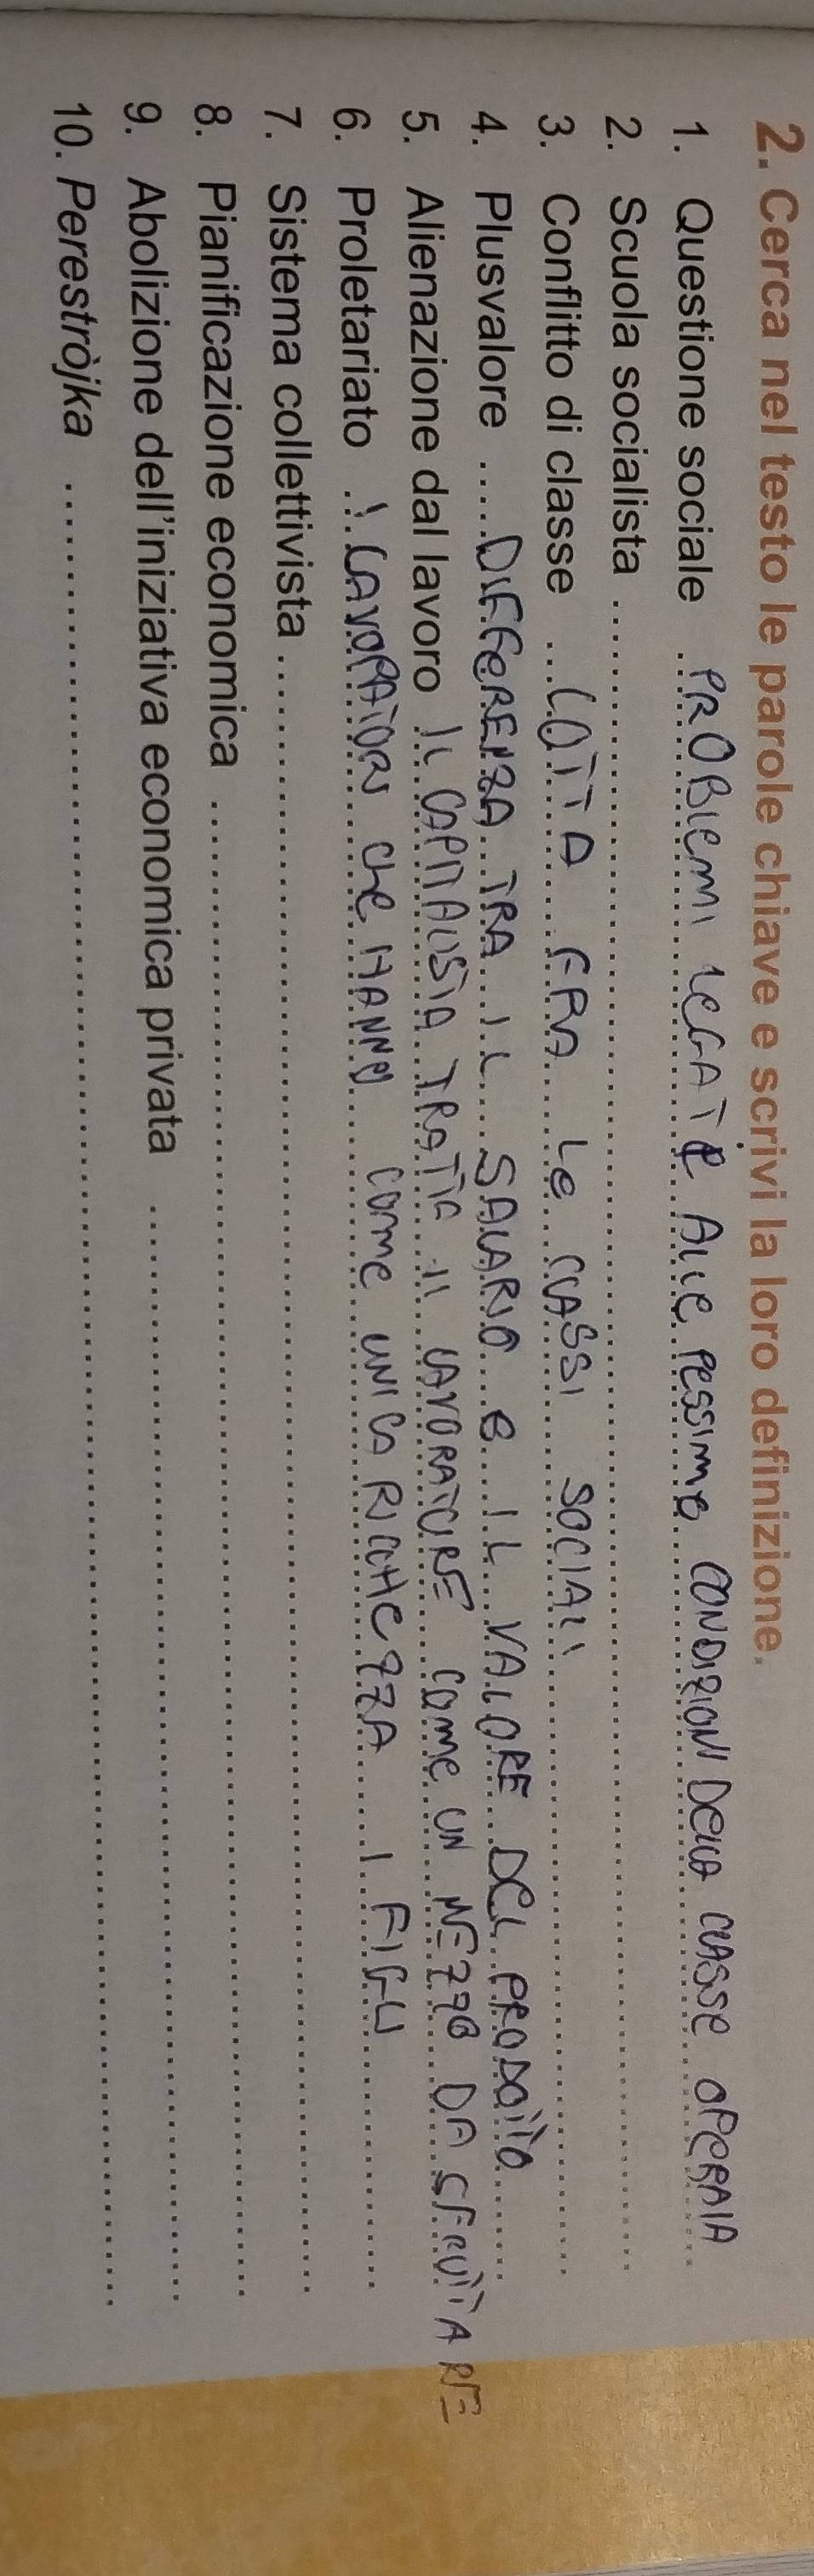 2. Cerca nel testo le parole chiave e scrivi la loro definizione.
1. Questione sociale PROBLEMI LEGATE ALLE PESSIME CONDIZIONI DELLA CLASSE OPERAIA
2. Scuola socialista
3. Conflitto di classe LOTTA FRA LE CLASSI SOCIALI
4. Plusvalore DIFFERENZA TRA IL SALARIO E IL VALORE DEL PRODOTTO
5. Alienazione dal lavoro IL CAPITALISTA TRATTA IL LAVORATORE COME UN MEZZO DA SFRUTTARE
6. Proletariato I LAVORATORI CHE HANNO COME UNICA RICCHEZZA I FIGLI
7. Sistema collettivista
8. Pianificazione economica
9. Abolizione dell'iniziativa economica privata
10. Perestròjka